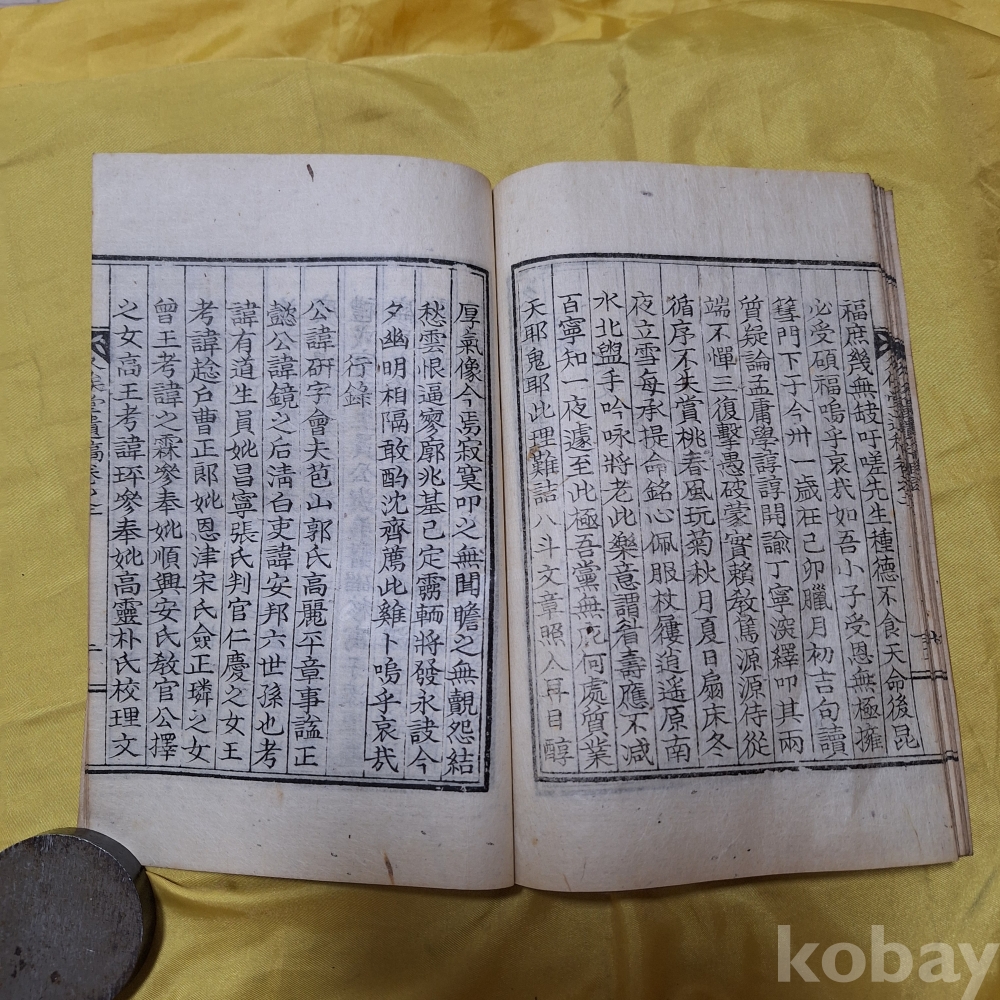 福庶幾無歧吁嗟先生種德不食天命後昆
必受碩福嗚乎哀㢤如吾小子受恩無極擁
篲門下于今卅一歲在己卯臘月初吉句讀
質疑論孟庸學諄諄開諭丁寧演繹叩其兩
端不憚三復擊愚破蒙實賴敎篤源源待從
循序不失賞桃春風玩菊秋月夏日扇床冬
夜立雪每承提命銘心佩服杖屨逍遥原南
水北盥手吟咏將老此樂意謂眉壽應不减
百寧知一夜遽至此極吾黨無 何處質業
天耶鬼耶此理難詰八斗文章照人耳目醇
厚氣像今焉寂寞叩之無聞瞻之無覿怨結
愁雲恨逼寥廓兆基已定靈輀將發永訣今
夕幽明相隔敢酌沈齊薦此雞卜嗚乎哀㢤
行錄
公諱硏字會夫苞山郭氏高麗平章事謚正
懿公諱鏡之后淸白吏諱安邦六世孫也考
諱有道生員妣昌寧張氏判官仁慶之女王
考諱趍戶曹正郎妣恩津宋氏僉正璘之女
曾王考諱之霖參奉妣順興安氏敎官公擇
之女高王考諱珲參奉妣高靈朴氏校理文
堂遺稿卷之
kobay